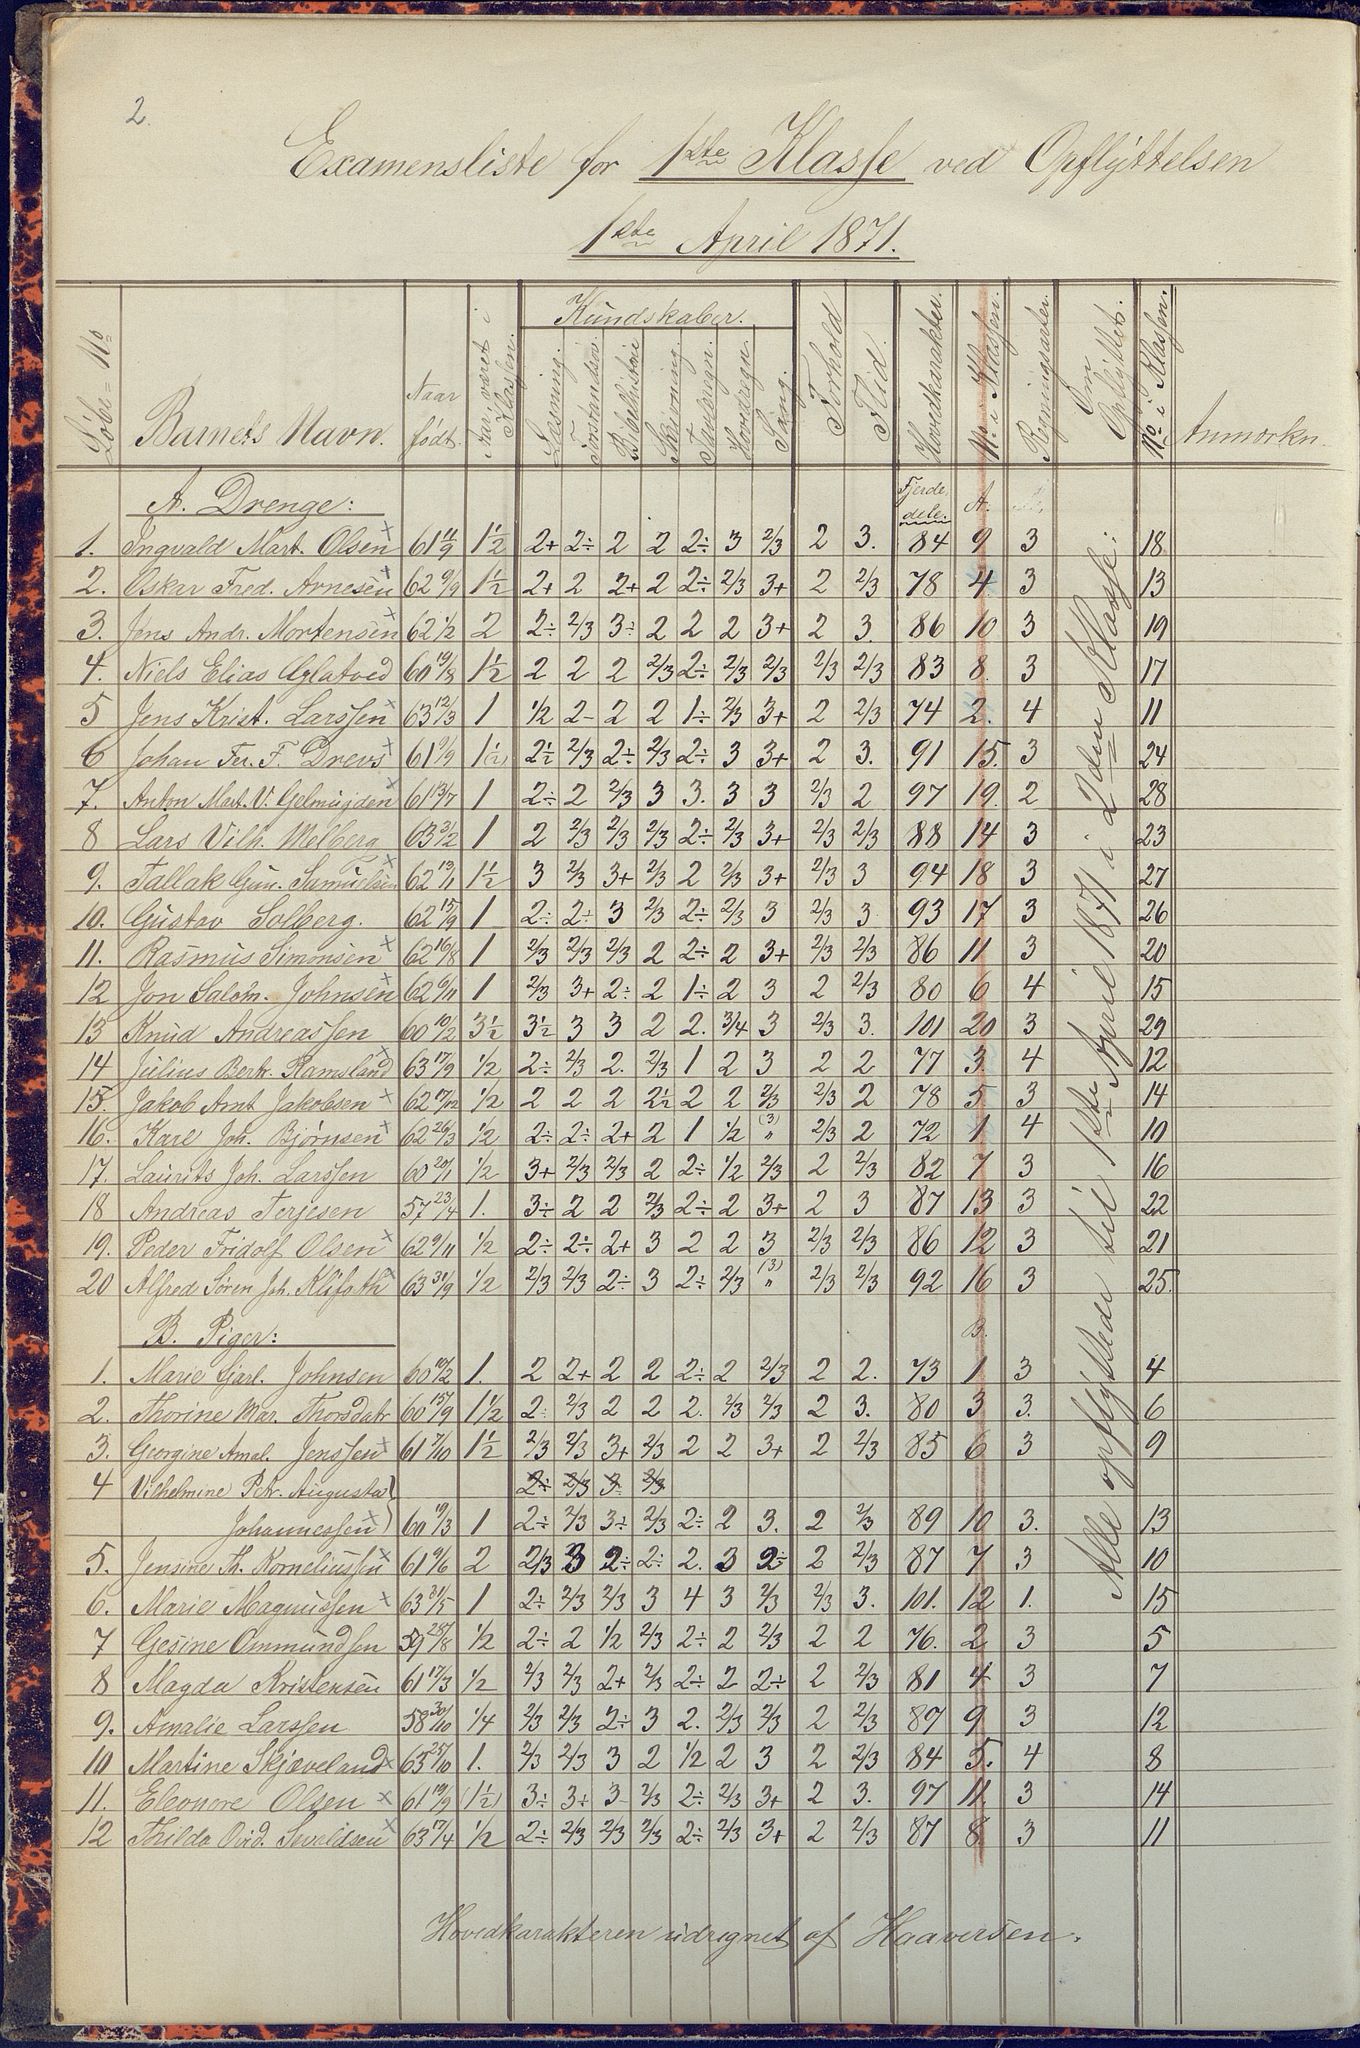 2.
Examensliste for 1ste Klasse ved Opflyttelsen
1ste April 1871.
Löbe-No
Barnets Navn.
Naar födt.
Aar, været i Klassen.
Kundskaber.
Læsning.
Forstandsöv.
Bibelhistorie
Skrivning.
Tavleregn.
Hovedregn.
Sang.
Forhold
Flid.
Hovedkarakter.
No i Klassen.
Regningsarter.
Om Opflyttet.
No i Klassen.
Anmærkn.
A. Drenge: Fjerde dele. A.
1. Ingvald Mart. Olsen 61 11/9 1½ 2+ 2÷ 2 2 2÷ 3 2/3 2 3. 84 9 3 18
2. Oskar Fred. Arnesen 62 9/9 1½ 2+ 2 2+ 2 2÷ 2/3 3+ 2 2/3 78 4 3 13
3. Jens Andr. Mortensen 62 1/2 2 2÷ 2/3 3÷ 2 2 2 3+ 2 3. 86 10 3 19
4. Niels Elias 60 19/8 1½ 2 2 2 2/3 2÷ 2/3 2/3 2/3 2/3 83 8. 3 17
5 Jens Krist. Larssen 63 12/3 1 ½ 2- 2 2 1÷ 2/3 3+ 2 2/3 74 2. 4 11
6 Johan Fer. F. Drevs 61 9/9 1(½) 2½ 2/3 2÷ 2/3 2÷ 3 3+ 2 3. 91 15. 3 24
7. Anton Mart. V. Gelmuyden 61 13/7 1 2÷ 2 2/3 3 3. 3 3 2/3 2 97 19. 2 28
8 Lars Vilh. Melberg 63 3/2 1 2 2/3 2/3 2/3 2÷ 2/3 3+ 2/3 2/3 88 14 3 23
9. Tallak Gun. Samuelsen 62 13/11 1½ 3 2/3 3+ 2/3 2 2/3 3+ 2/3 3 94 18 3 27
10. Gustav Solberg. 62 15/9 1 2÷ 2÷ 3 2/3 2÷ 2/3 3 2/3 3 93 17 3 26
11. Rasmus Simonsen 62 16/8 1 2/3 2/3 2/3 2 2÷ 2 3+ 2/3 2/3 86 11 3 20
12 Jon Salom. Johnsen 62 6/11 1 2/3 3+ 2÷ 2 1÷ 2 3 2 2/3 80 6 4 15
13 Knud Andreassen 60 10/2 3½ 3½ 3 3 2 2. 3/4 3 2/3 3. 101 20 3 29
14 Julius Bert. Ramsland 63 17/9 1/2 2÷ 2/3 2. 2/3 1 2 3 2 2 77 3. 4 12
15. Jakob Amt Jakobsen 62 17/12 1/2 2 2 2 2½ 2 2 2/3 2/3 2 78 5 3 14
16. Karl Joh. Bjørnsen 62 26/3 1/2 2÷ 2÷ 2+ 2 1 1/2 (3) " 2/3 2 72 1 4 10
17. Laurits Joh. Larssen 60 20/1 1/2 3+ 2/3 2/3 2 2÷ 1/2 2/3 2 2/3 82 7 3 16
18 Andreas Terjesen 57 23/4 1. 3÷ 2 2 2/3 2÷ 2 3+ 2 3 87 13 3 22
19. Peder Fridolf Olsen 62 9/11 1/2 2÷ 2÷ 2+ 3 2 2 3 2/3 2/3 86 12 3 21
20 Alfred Sören Joh. Klifoth 63 31/9 1/2 2/3 2/3 2÷ 3 2÷ 2/3 (3) " 2/3 2/3 92 16 3 25.
B. Piger: B.
1. Marie Johnsen 60 10/2 1. 2 2+ 2 2 2÷ 2 2/3 2 2. 73 1 3 4
2. Thorine Mar. Thorsdatr 60 15/9 1½ 2 2/3 2 2 2. 2/3 2/3 2 3. 80 3 3. 6
3. Georgine Amal. Jenssen 61 7/10 1½ 2/3 2/3 3+ 2/3 2 2 3+ 2 2/3 85 6 3 9
4 Vilhelmine Petr. Augusta 2÷ 2/3 3 2/3
Johannessen 60 19/3 1 2÷ 2/3 3÷ 2/3 2÷ 2 3. 2 2/3 89 10 3. 13
5. Jensine Th. Korneliussen 61 6/6 2 2/3 3 2÷ 2÷ 2. 3 2÷ 2 2/3 87 7 3 10
6. Marie Magnussen 63 31/5 1 2÷ 2/3 2/3 3 4 3 2/3 2/3 3. 101. 12 1. 15
7 Gesine Ommundsen 59 28/8 1/2 2÷ 2 1/2 2/3 2÷ 2 2/3 2 2 76. 2 3 5
8 Magda Kristensen 61 17/3 1/2 2/3 2/3 2+ 2/3 2÷ 2 2÷ 2 2/3 81 4 3 7
9. Amalie Larssen 58 30/10 1/4 2/3 2/3 2÷ 3 2. 2/3 2/3 2 2/3 89 9 3 12
10 Martine Skjæveland 63 25/10 1. 2/3 2/3 3 2 1/2 2 3 2 2/3 84 5. 4 8
11. Eleonore Olsen 61 19/9 (1½) 3÷ 3÷ 3- 2/3 2÷ 2/3 3+ 2 3. 97 11. 3 14
12 Thilda Sivertsen 63 17/4 1/2 2÷ 2/3 2/3 2/3 2÷ 2/3 3+ 2 2/3 87 8 3 11
Alle opflyttede til 1ste April 1871 i 2den Klasse:
Hovedkarakteren udregnet af Haaversen.